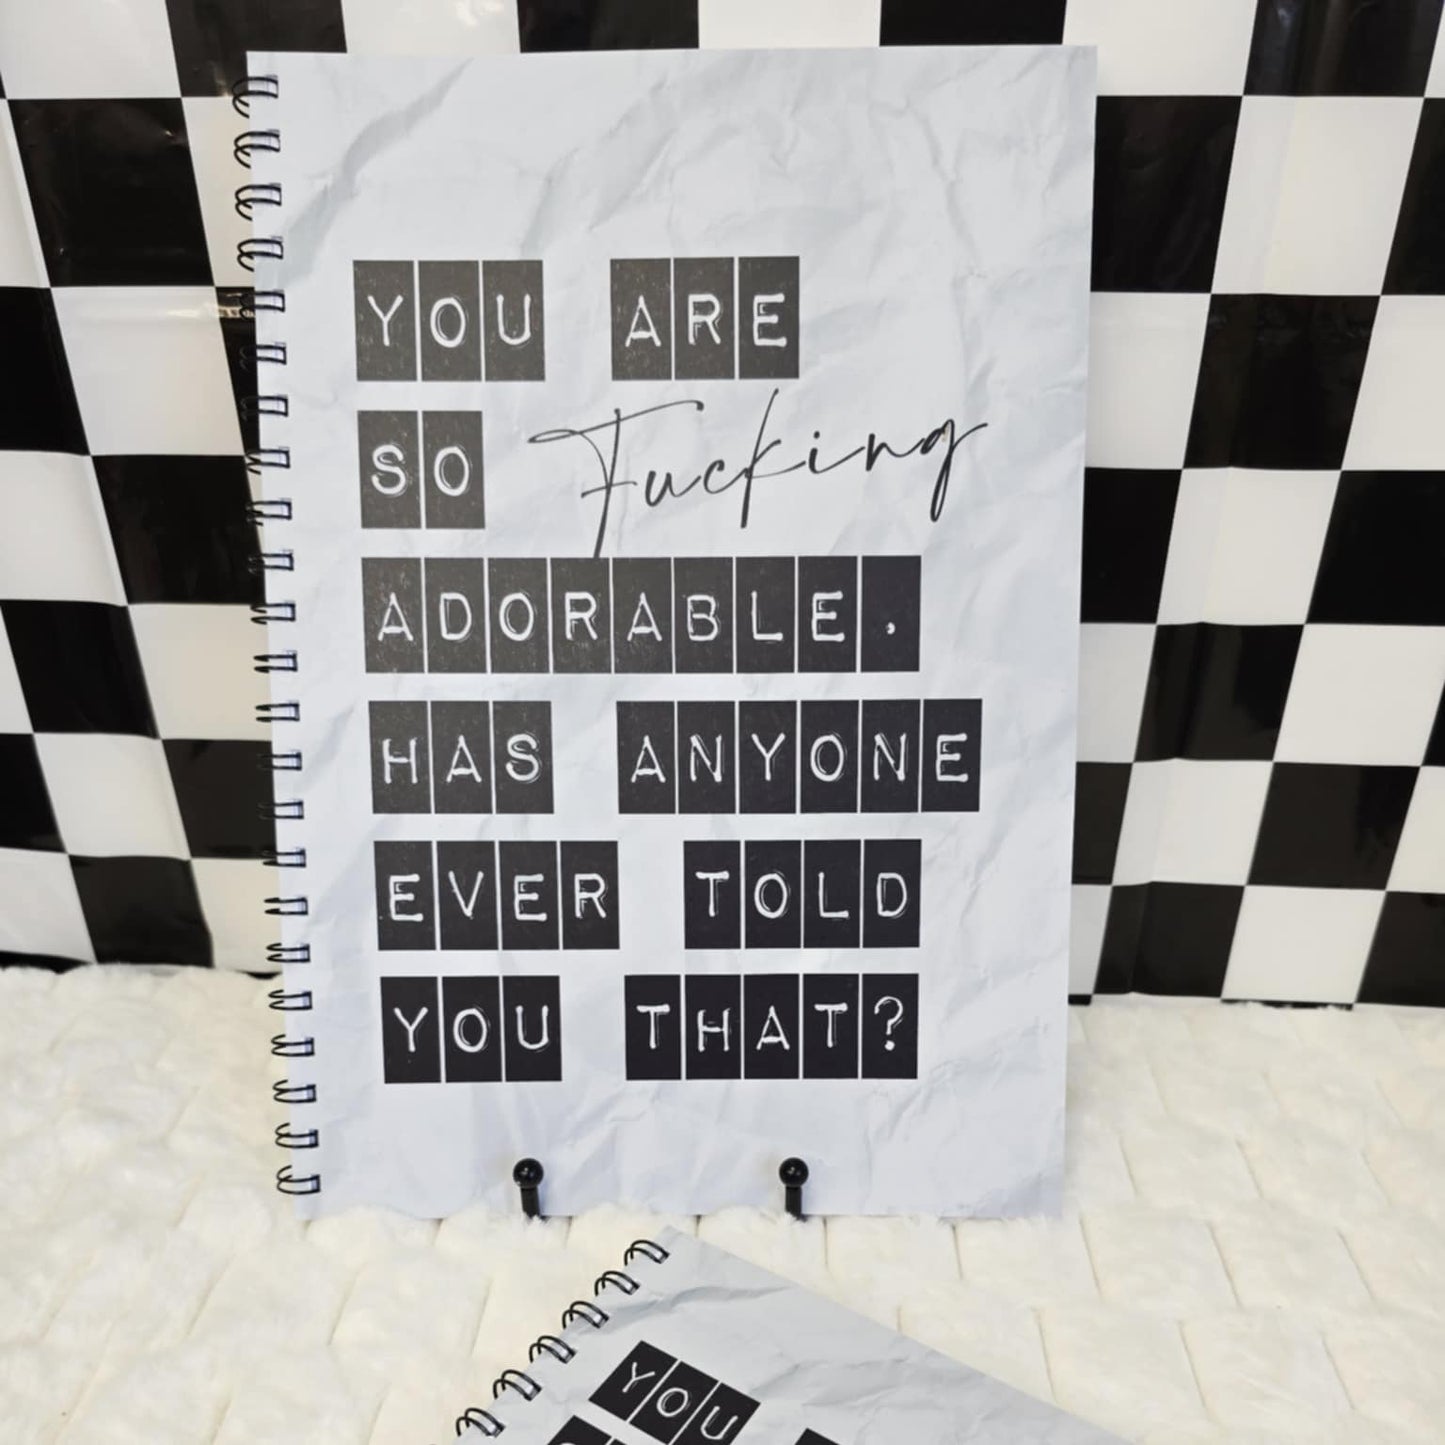 YOU ARE
SO Fucking
ADORABLE.
HAS ANYONE
EVER TOLD
YOU THAT?
YOU